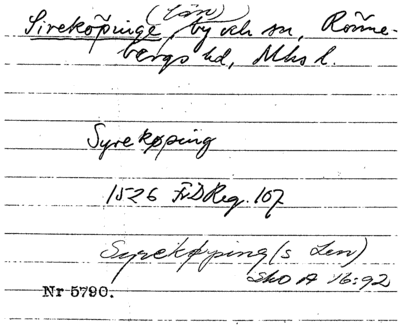 (Län)
Sireköpinge, by och sn, Rönne-
bergs hd, Mhs l.
Syrekøping
1526 FrDReg. 107
Syrekøping (s Len)
Sko A 16:92
Nr 5790.